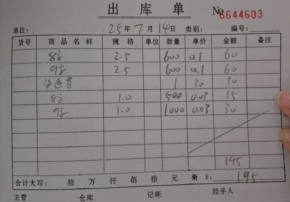 出库单 № 6644603
单位: 25年7月14日 类别: 编号:
货号 商品名称 规格 单位 数量 单价 金额 备注
8分 2.5 600 0.1 60
9分 2.5 600 0.1 60
1 30 30
8分 1.0 500 0.03 15
9分 1.0 1000 0.03 30
195
合计大写: 拾 万 仟 佰 拾 元 角 ¥: 195
主管 仓库 记账 经手人